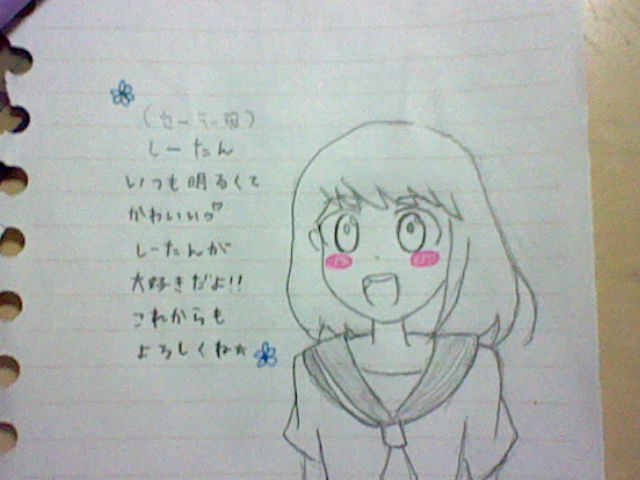 (セーラー服)
しーたん
いつも明るくて
かわいい♡
しーたんが
大好きだよ!!
これからも
よろしくね☆